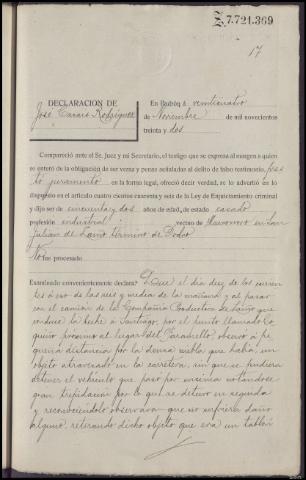 Z.7.721.369
17
DECLARACIÓN DE
José Casais Rodríguez
En Padrón á veinticuatro
de Noviembre de mil novecientos
treinta y dos
Compareció ante el Sr. Juez y mi Secretario, el testigo que se expresa al margen a quien
se enteró de la obligación de ser veraz y penas señaladas al delito de falso testimonio, pres
tó juramento en la forma legal, ofreció decir verdad, se lo advertio en lo
dispuesto en el articulo cuatro cientos cuarenta y seis de la Ley de Enjuiciamiento criminal
y dijo ser de cincuenta y dos años de edad, de estado casado
profesión industrial vecino de en San
Julian de término de
No fue procesado
Examinado convenientemente declara: Que el día diez de los corrien
tes á eso de las seis y media de la mañana y al pasar
con el camión de la Compañía Productora de que
conduce la leche a Santiago, por el punto llamado Co
próximo al lugar del Faramello, observó á pe
queña distancia por la densa niebla que habia, un
objeto atravesado en la carretera, sin que se pudiera
detener el vehículo que pasó por encima notándose
gran trepidación por lo que se detuvo en seguida
y reconociéndolo observaron que no sufriera daño
alguno, retirando dicho objeto que era un tablón